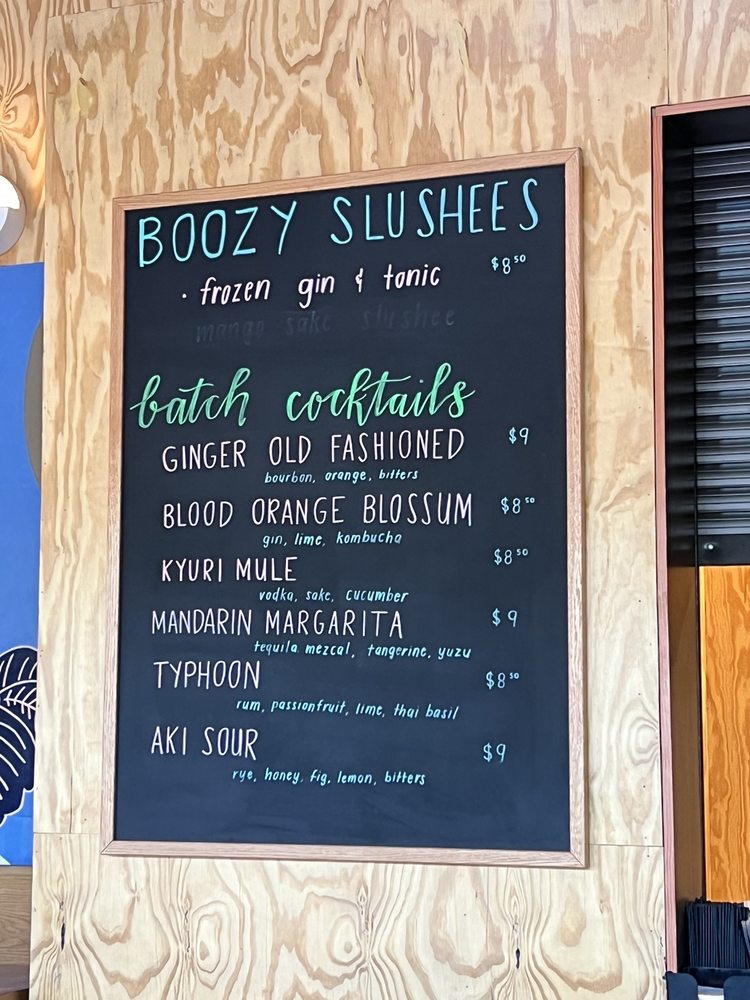 BOOZY SLUSHEES
· frozen gin & tonic $8⁵⁰
mango sake slushee
batch cocktails
GINGER OLD FASHIONED $9
bourbon, orange, bitters
BLOOD ORANGE BLOSSUM $8⁵⁰
gin, lime, kombucha
KYURI MULE $8⁵⁰
vodka, sake, cucumber
MANDARIN MARGARITA $9
tequila mezcal, tangerine, yuzu
TYPHOON $8⁵⁰
rum, passionfruit, lime, thai basil
AKI SOUR $9
rye, honey, fig, lemon, bitters